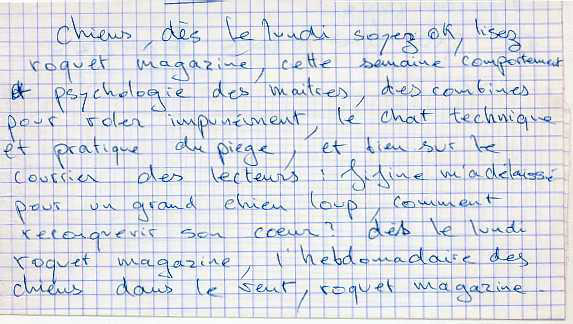 Chiens, dès le lundi soyez OK, lisez
roquet magazine, cette semaine comportement
et psychologie des maitres, des combines
pour voler impunément, le chat technique
et pratique du piège, et bien sur le
courrier des lecteurs : fifine m'a délaissé
pour un grand chien loup, comment
reconquerir son coeur? dès le lundi
roquet magazine, l'hebdomadaire des
chiens dans le vent, roquet magazine.